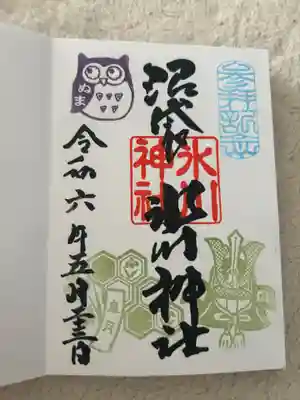 参拝記念
沼袋
氷川神社
氷川
神社
ぬま
令和六年五月二十三日
皐月